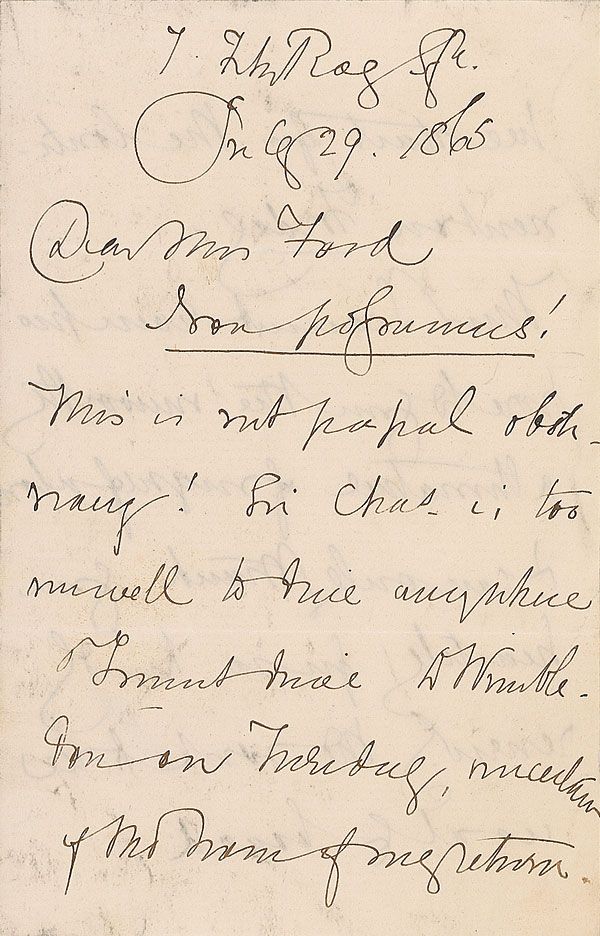 7. FitzRoy Sqre.
July 29. 1865
Dear Mrs Ford
Non possumus!
This is not papal obsti-
nacy! Sir Chas. is too
unwell to dine anywhere
& I must drive to Wimble-
don on Tuesday, uncertain
of the hour of my return.